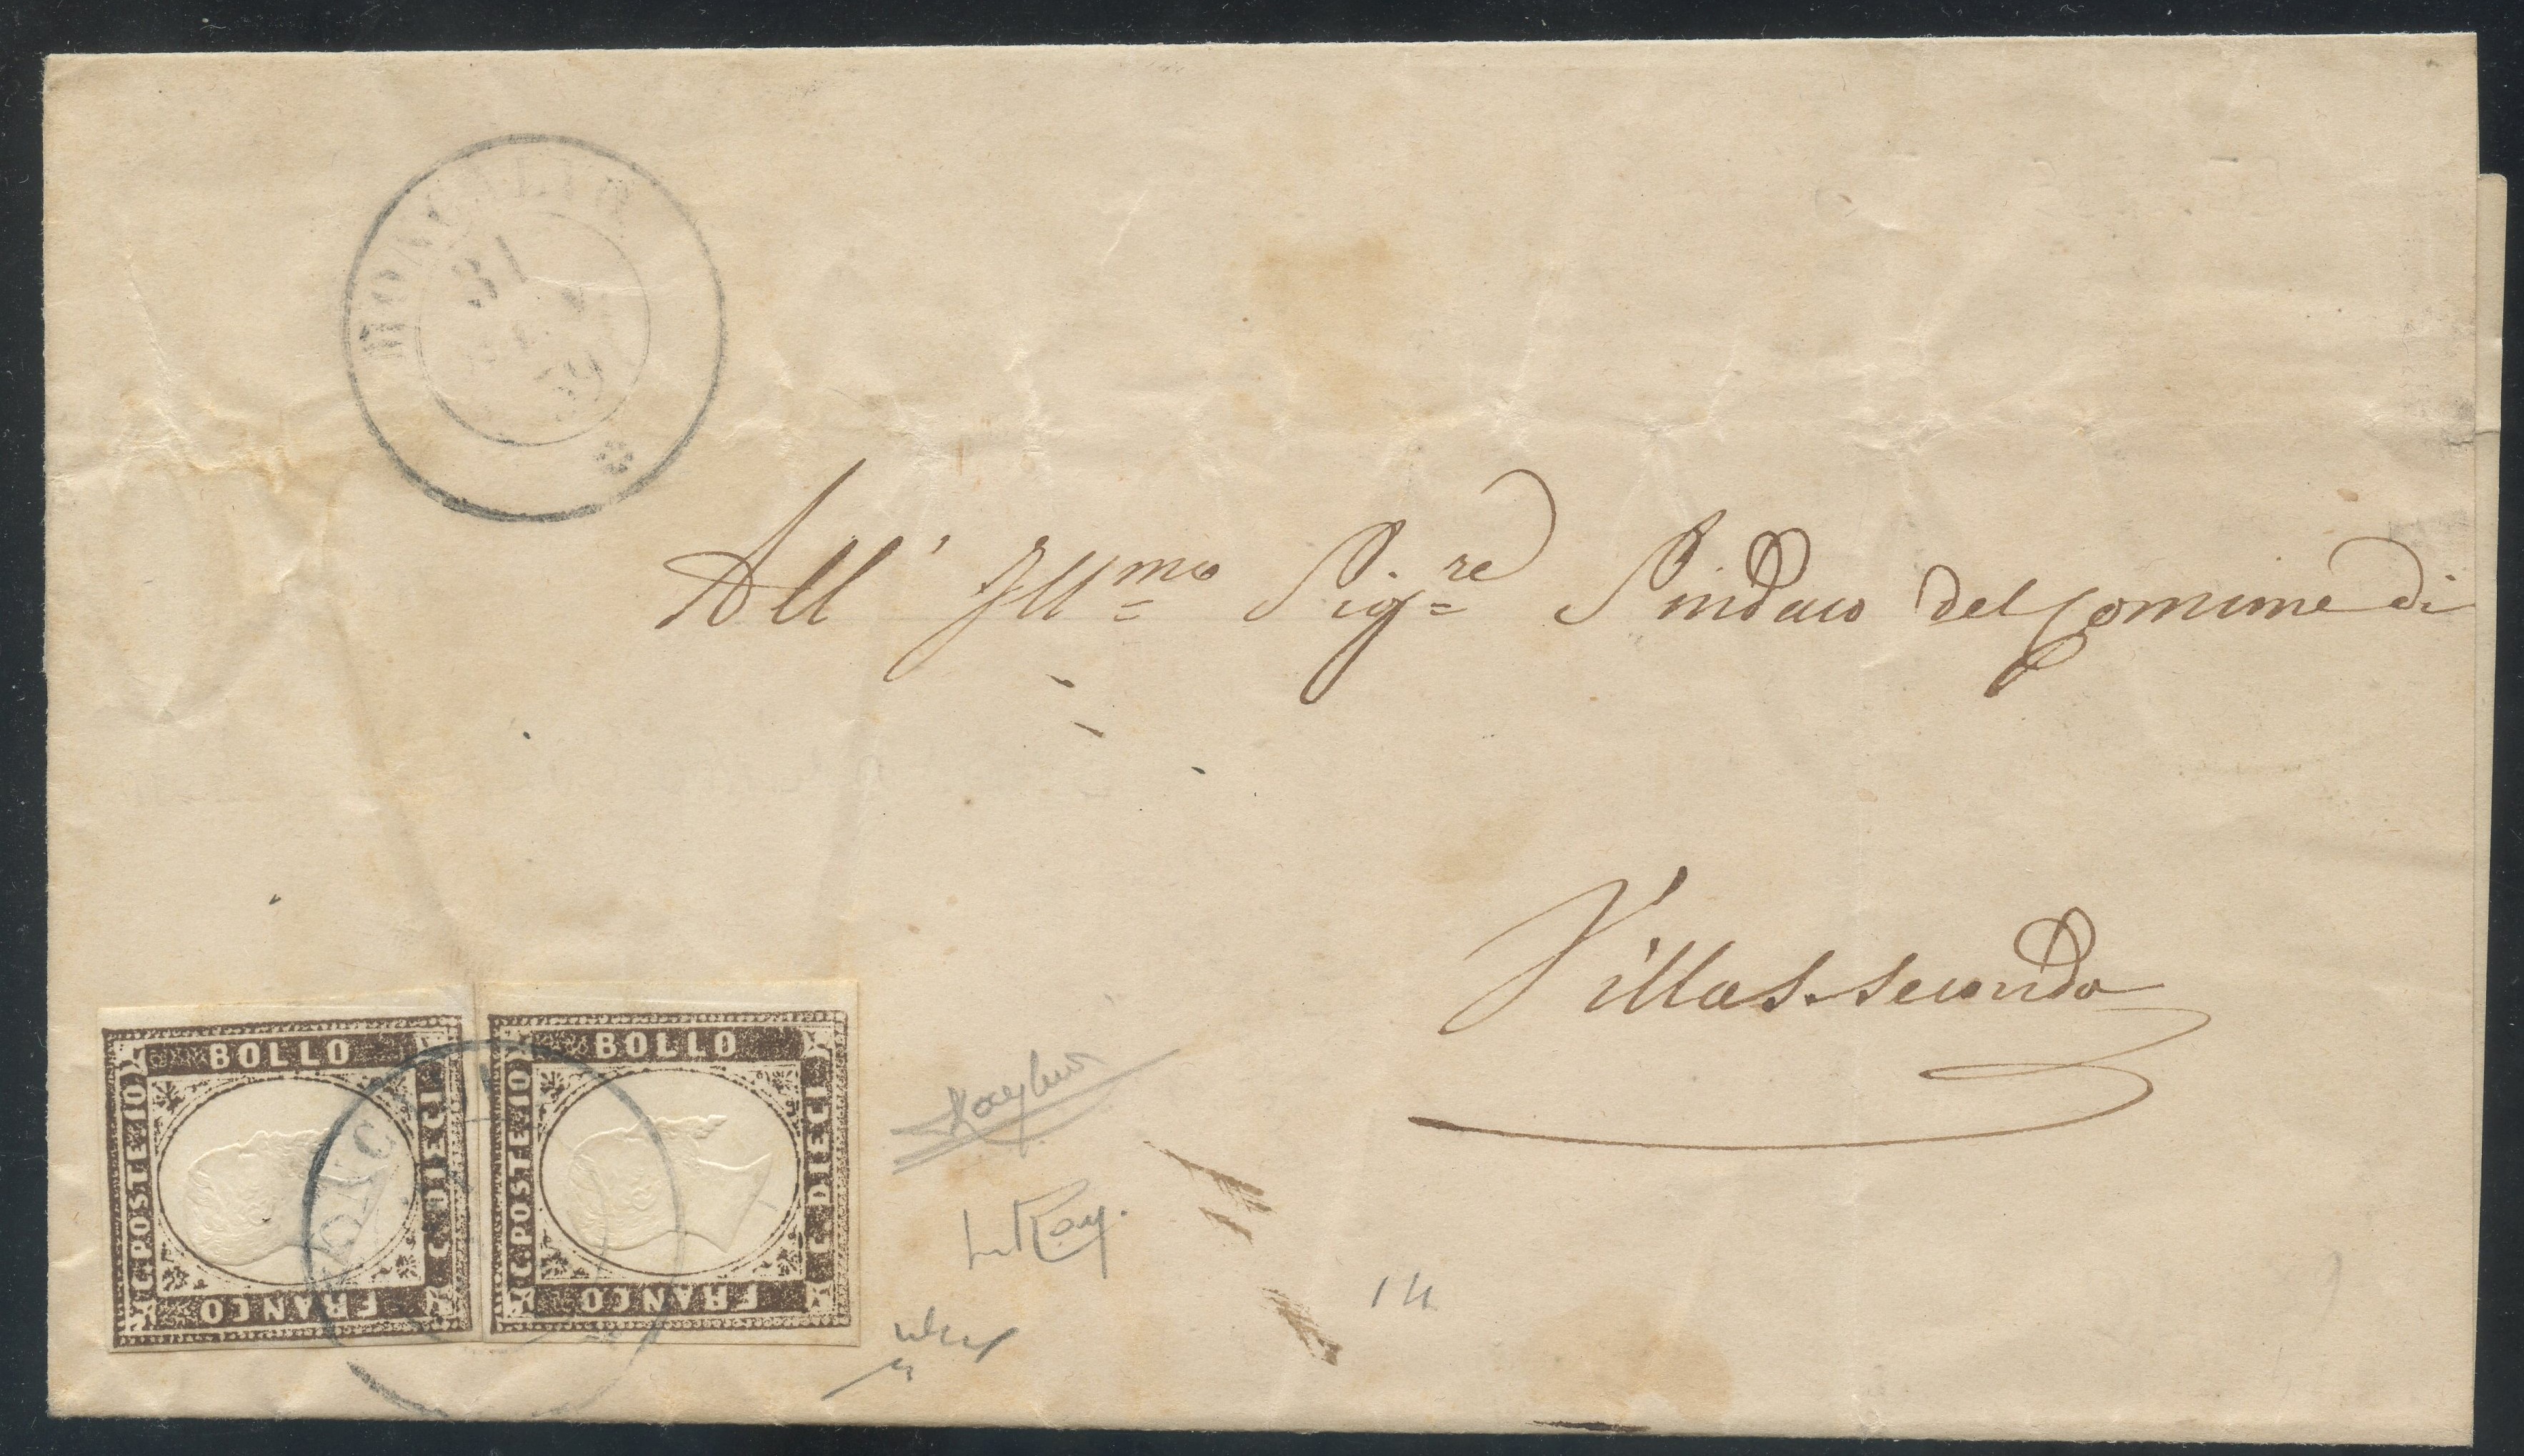 MONCALVO
31
59
All' Ill.mo Sig.re Sindaco del Comune di
Villa S. Secondo
BOLLO
C. POSTE IO
C. DIECI
FRANCO
BOLLO
C. POSTE IO
C. DIECI
FRANCO
14